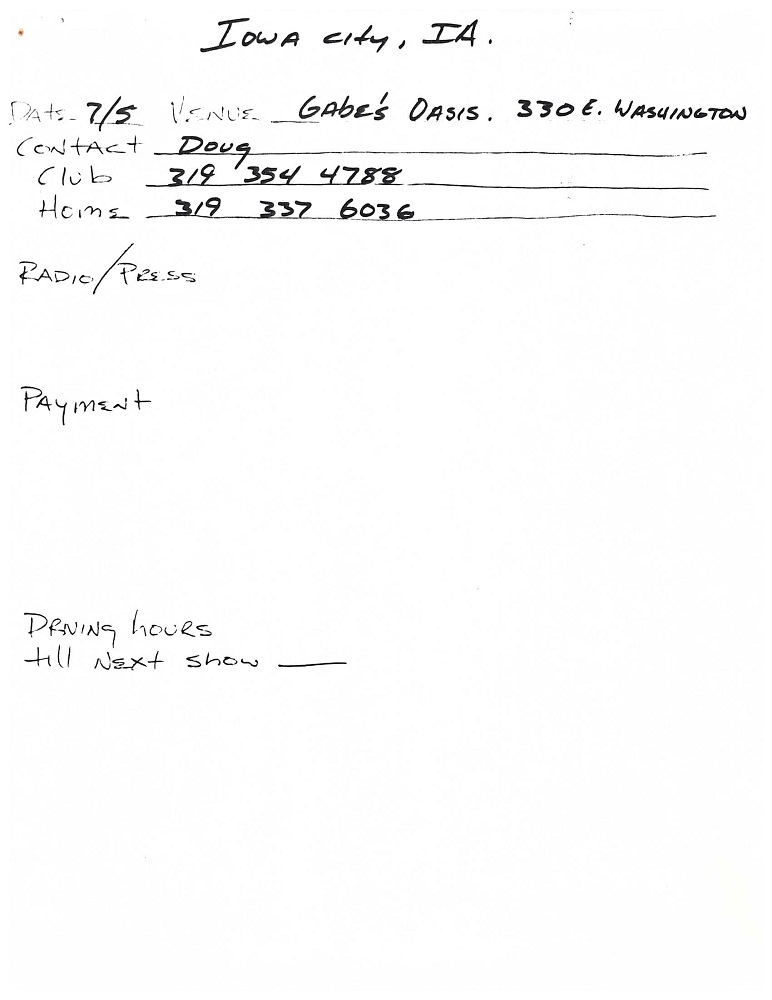 Iowa city, IA.
Date 7/5 Venue Gabe's Oasis. 330 E. Washington
Contact Doug
Club 319 354 4788
Home 319 337 6036
Radio/Press
Payment
Driving hours
till next show